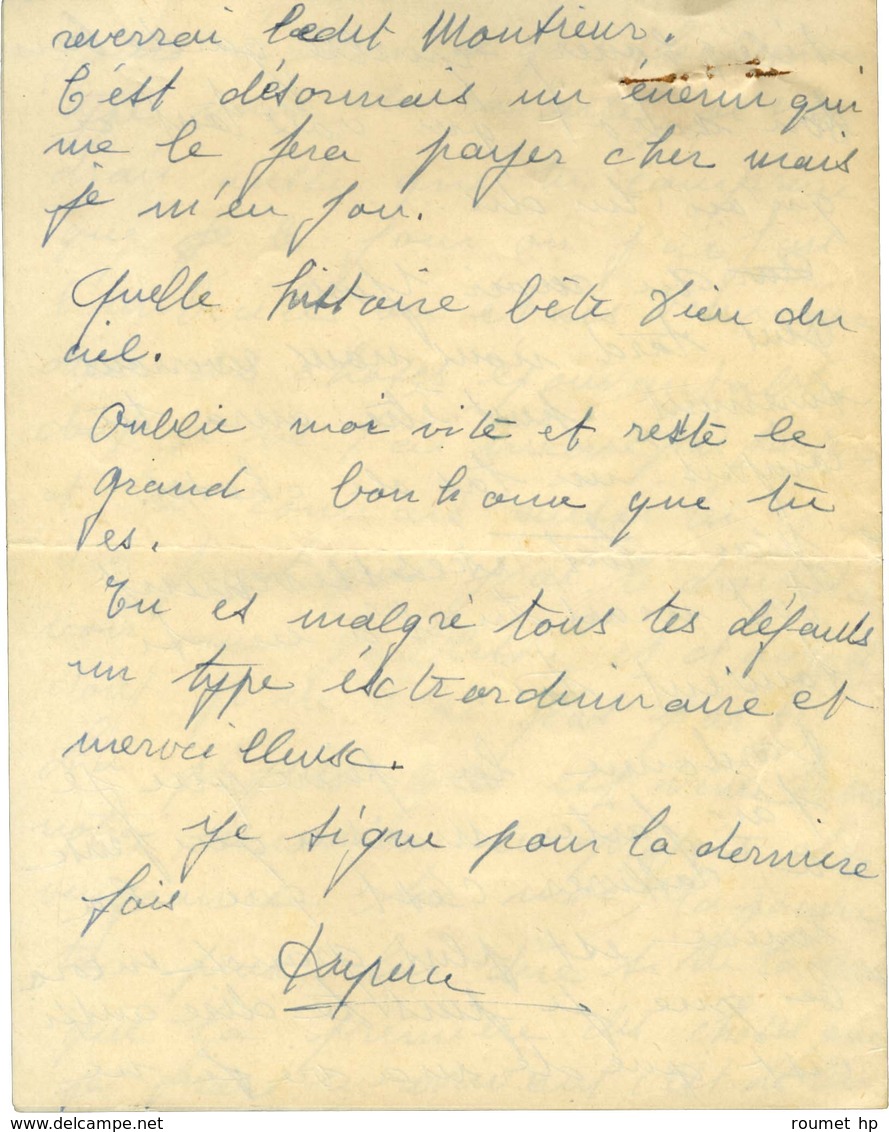 reverrai ledit Monsieur.
C'est désormais un énemi qui
me le fera payer cher mais
je m'en fou.
Quelle histoire bête Dieu du
ciel.
Oublie moi vite et reste le
grand bonhome que tu
es.
Tu es malgré tous tes défauts
un type éxctraordinnaire et
merveilleux.
Je signe pour la derniere
fois
roumet hp